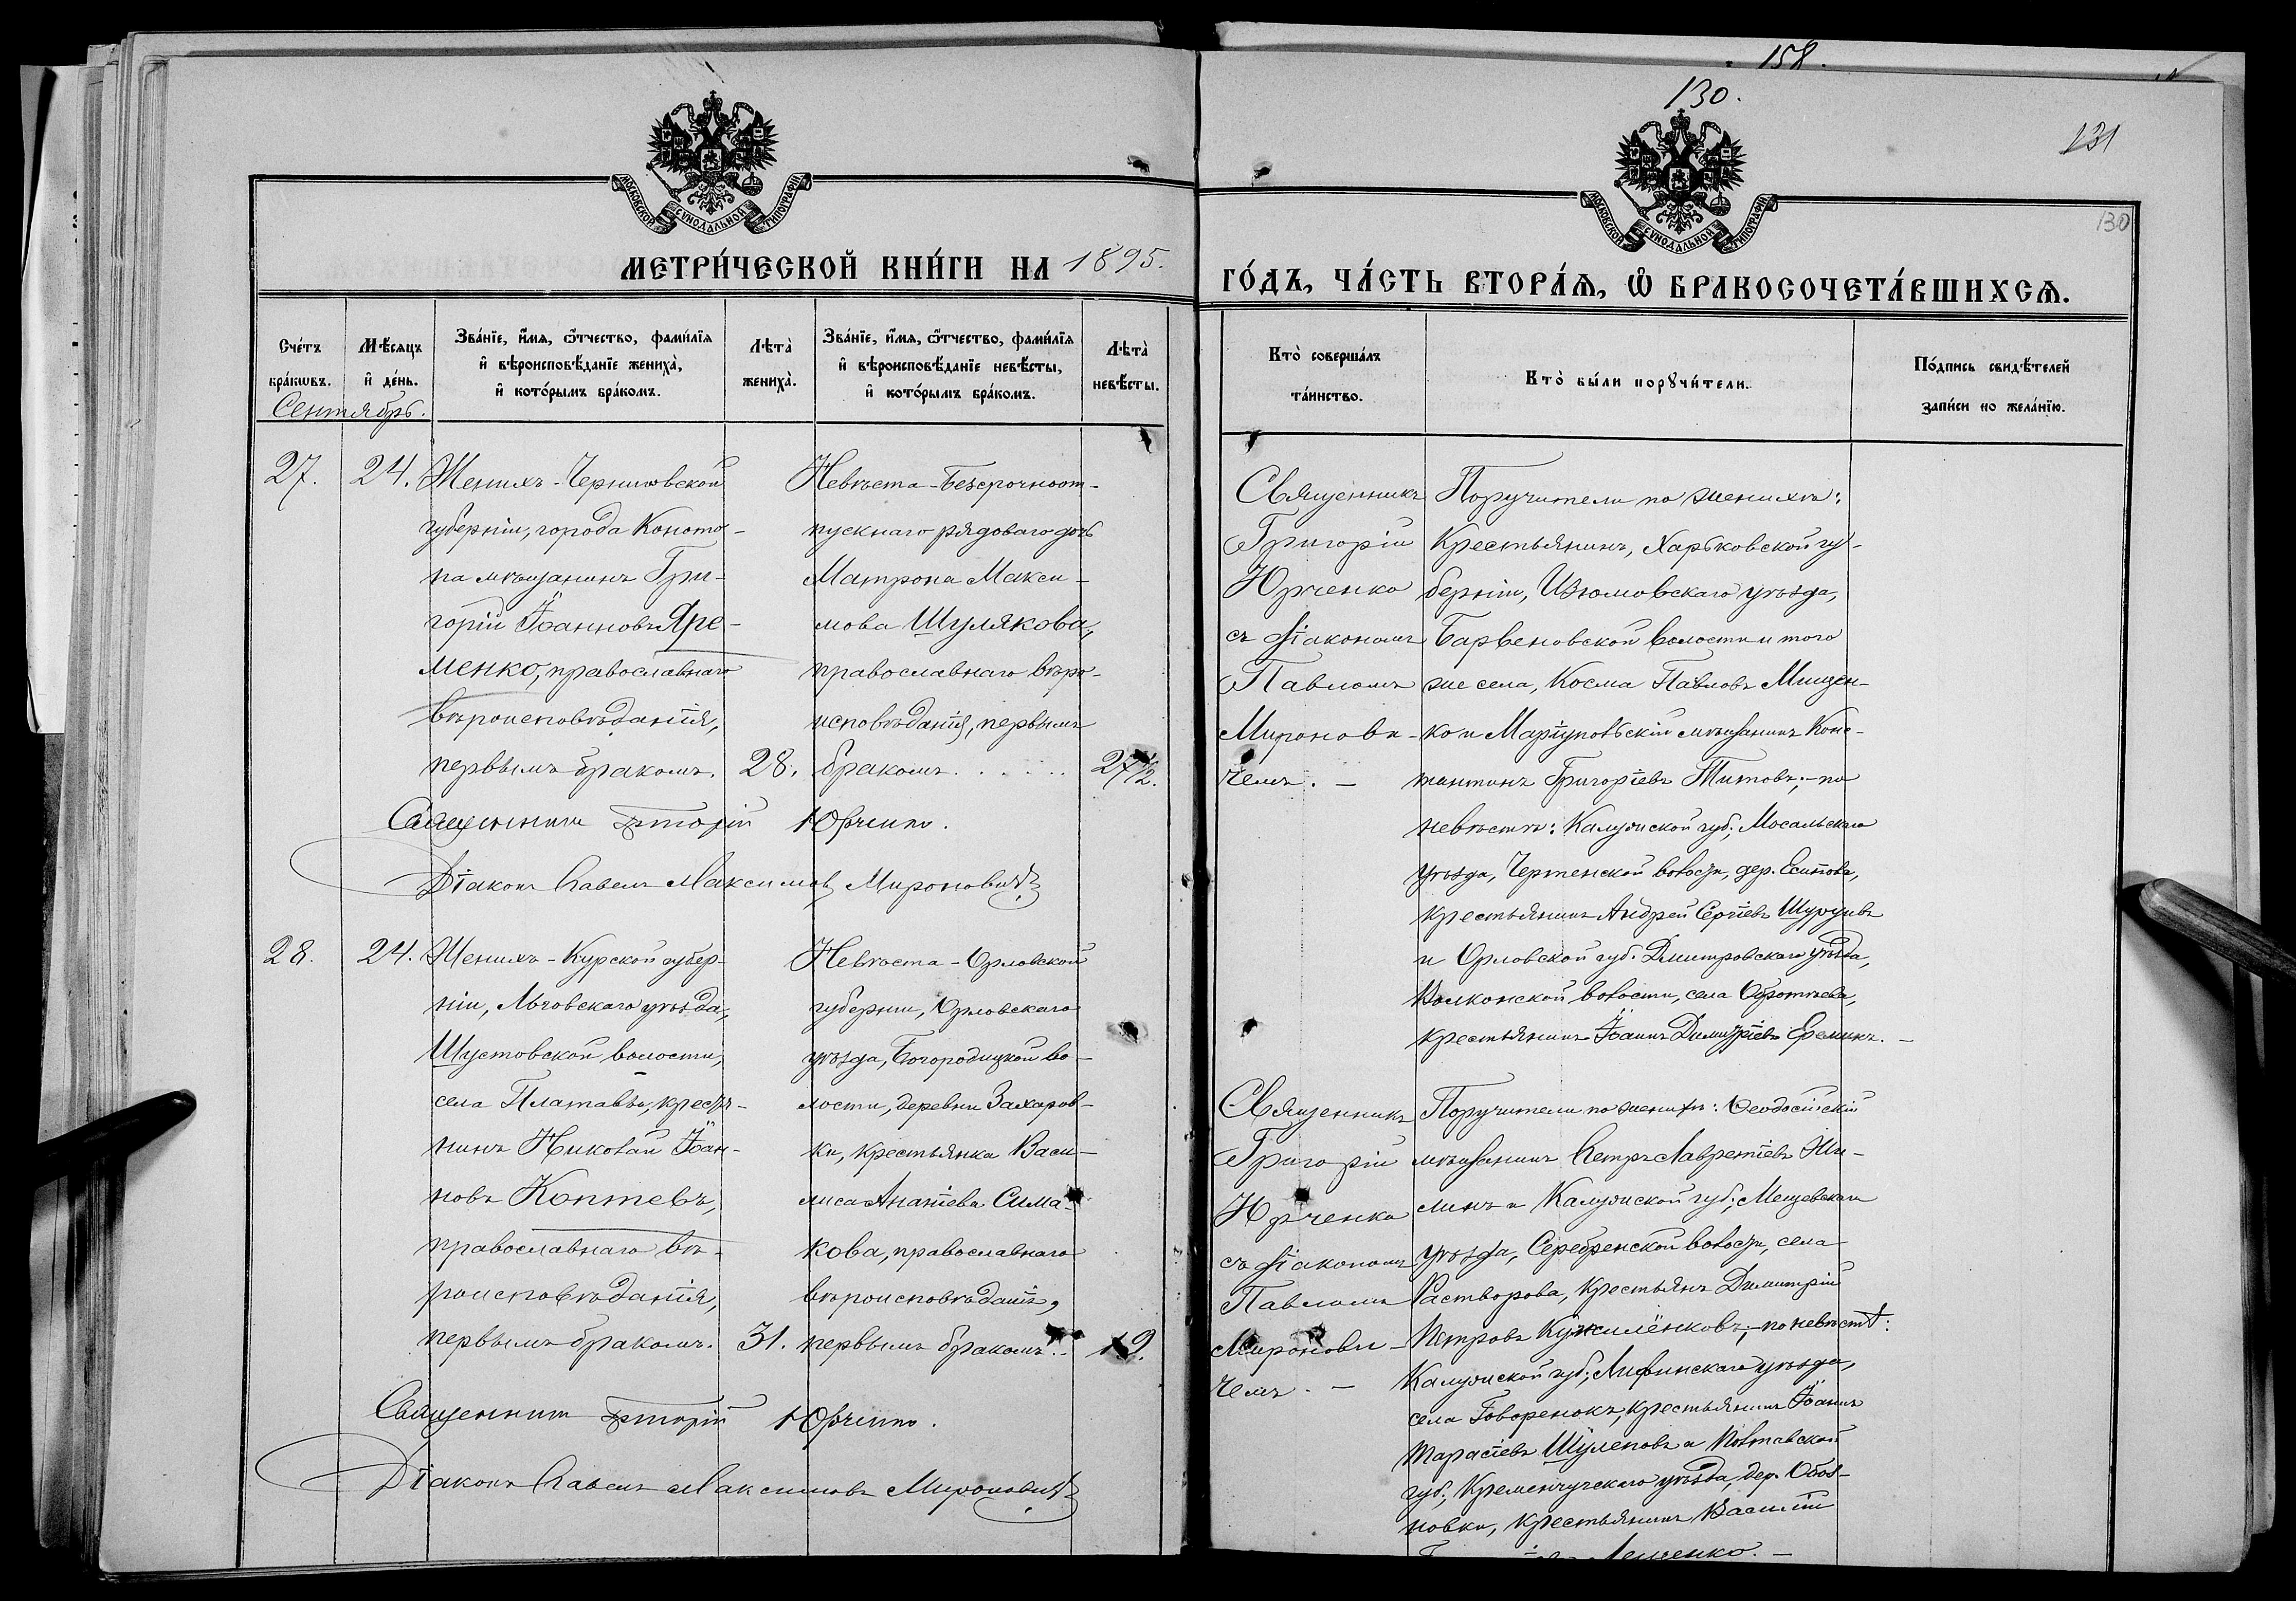 158.
130.
131
130
МОСКОВСКОЙ СѴНОДАЛЬНОЙ ТИПОГРАФІИ
МОСКОВСКОЙ СѴНОДАЛЬНОЙ ТИПОГРАФІИ
МЕТРИ́ЧЕСКОЙ КНИ́ГИ НА 1895.
ГО́ДЪ, ЧА́СТЬ ВТОРА́Ѧ, Ѽ БРАКОСОЧЕТА́ВШИХСѦ.
Сче́тъ бра́кѡвъ.
Мѣ́сяцъ и҆ де́нь.
Зва́нїе, и҆́мѧ, ѻ҆́тчество, фами́лїѧ и҆ вѣроисповѣ́данїе жениха̀, и҆ кото́рымъ бра́комъ.
Лѣта̀ жениха̀.
Зва́нїе, и҆́мѧ, ѻ҆́тчество, фами́лїѧ и҆ вѣроисповѣ́данїе невѣ́сты, и҆ кото́рымъ бра́комъ.
Лѣта̀ невѣ́сты.
Кто̀ соверша́лъ та́инство.
Кто̀ бы́ли порꙋчи́тели.
По́дпись свидѣ́телей за́писи по жела́нїю.
Сентябрь.
27.
24.
Женихъ - Черниговской
губерніи, города Коното-
па мѣщанинъ Гри-
горій Іоанновъ Яре-
менко, православнаго
вѣроисповѣданія,
первымъ бракомъ.
28.
Невѣста - Безсрочноот-
пускнаго рядоваго дочь
Матрона Макси-
мова Шулякова,
православнаго вѣро-
исповѣданія, первымъ
бракомъ. . . . . .
27½.
Священникъ
Григорій
Юрченко
съ діакономъ
Павломъ
Миронови-
чемъ. —
Поручители по женихѣ:
Крестьянинъ, Харьковской гу-
берніи, Изюмовскаго уѣзда,
Барвеновской волости и того
же села, Косма Павловъ Мищен-
ко и Маріупольскій мѣщанинъ Конс-
тантинъ Григоріевъ Титовъ; - по
невѣстѣ: Калужской губ; Мосальскаго
уѣзда, Чертенской волости, дер. Есипова,
крестьянинъ Андрей Сергіевъ
и Орловской губ. Дмитровскаго уѣзда,
Волконской волости, села
крестьянинъ Іоаннъ Димитріевъ Ереминъ. —
Священникъ Григорій Юрченко.
Діаконъ Павелъ Максимовъ Мироновичъ
28.
24.
Женихъ - Курской губер-
ніи, Льговскаго уѣзда,
Шустовской волости,
села Платавы, крестья-
нинъ Николай Іоан-
новъ Коптевъ,
православнаго вѣ-
роисповѣданія,
первымъ бракомъ.
31.
Невѣста - Орловской
губерніи, Орловскаго
уѣзда, Богородицкой во-
лости, деревни Захаров-
ки, крестьянка Васи-
лиса Ананіева Сима-
кова, православнаго
вѣроисповѣданія,
первымъ бракомъ. .
19.
Священникъ
Григорій
Юрченко
съ діакономъ
Павломъ
Миронови-
чемъ. —
Поручители по женихѣ: Ѳеодосійскій
мѣщанинъ Петръ Лаврентіевъ
и Калужской губ; Мещевскаго
уѣзда, Серебренской волости, села
Растворова, крестьянъ Димитрій
Петровъ Кужелёнковъ; - по невѣстѣ:
Калужской губ; Лихвинскаго уѣзда,
села Говоренокъ, крестьянинъ Іоаннъ
Тарасіевъ Шулеповъ и Полтавской
губ; Кременчугскаго уѣзда, дер.
новки, крестьянинъ Василій
Священникъ Григорій Юрченко.
Діаконъ Павелъ Максимовъ Мироновичъ